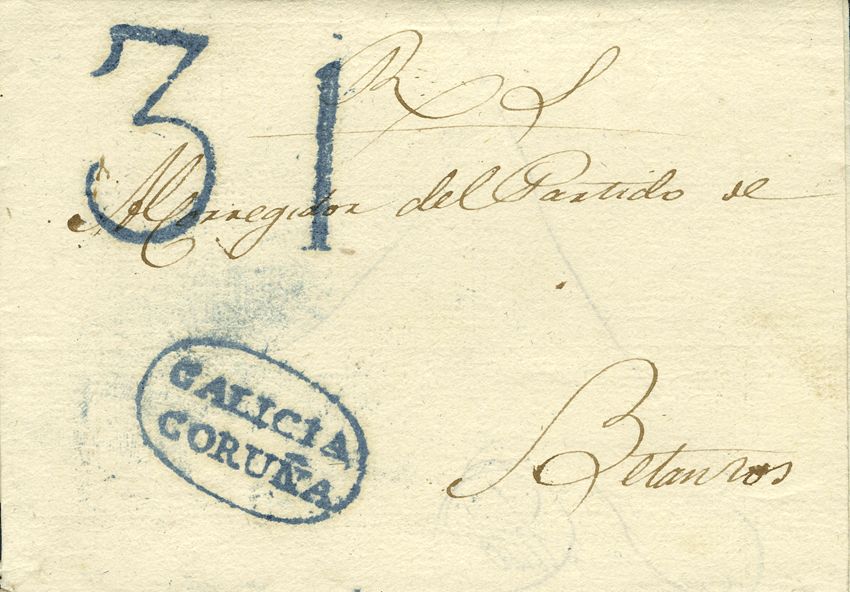 31
R S
Al Corregidor del Partido de
GALICIA
CORUÑA
Betanzos